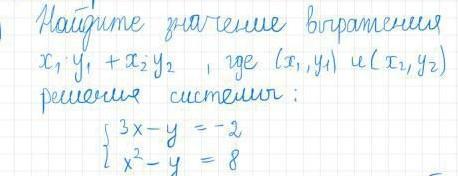 Найдите значение выражения
x₁·y₁ + x₂·y₂ , где (x₁, y₁) и (x₂, y₂)
решения системы :
{ 3x – y = –2
{ x² – y = 8